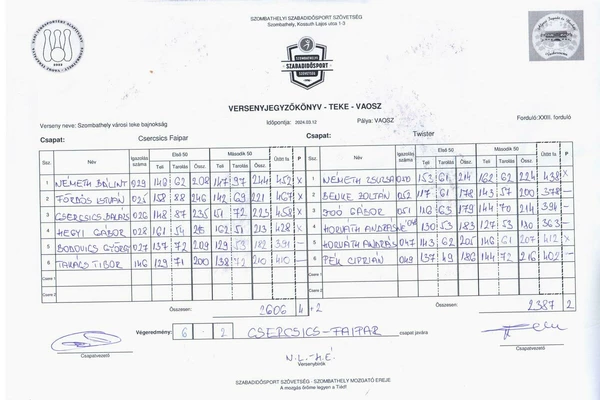 SZOMBATHELYI SZABADIDŐSPORT SZÖVETSÉG
Szombathely, Kossuth Lajos utca 1-3
SZOMBATHELYI
SZABADIDŐSPORT
SZÖVETSÉG
VERSENYJEGYZŐKÖNYV - TEKE - VAOSZ
Verseny neve: Szombathely városi teke bajnokság
Időpontja: 2024.03.12
Pálya: VAOSZ
Forduló: XXIII. forduló
Csapat: Csercsics Faipar
Csapat: Twister
Ssz. Név Igazolás száma Első 50 Második 50 Ütött fa P
Teli Tarolás Össz. Teli Tarolás Össz.
1 NÉMETH BÁLINT 029 146 62 208 147 97 244 452 X
2 FÖRDŐS ISTVÁN 025 158 88 246 142 69 221 467 X
3 CSERCSICS BALÁZS 026 148 87 235 151 72 223 458 X
4 HEGYI GÁBOR 028 161 54 215 162 51 213 428 X
5 BODOVICS GYÖRGY 027 137 72 209 129 53 182 391 —
6 TAKÁCS TIBOR 146 129 71 200 138 72 210 410 —
Csere 1
Csere 2
Összesen: 2606 4 +2
Ssz. Név Igazolás száma Első 50 Második 50 Ütött fa P
Teli Tarolás Össz. Teli Tarolás Össz.
1 NÉMETH ZSUZSA 050 153 61 214 162 62 224 438 —
2 BENKE ZOLTÁN 052 117 61 178 143 57 200 378 —
3 JOÓ GÁBOR 051 114 65 179 144 70 214 394 —
4 HORVÁTH ANDRÁSNÉ 130 53 183 127 53 180 363 —
5 HORVÁTH ANDRÁS 047 143 62 205 146 61 207 412 X
6 PÉK CIPRIÁN 049 137 49 186 144 72 216 402 —
Összesen: 2387 2
Végeredmény: 6 - 2 CSERCSICS-FAIPAR csapat javára
Csapatvezető
N.L.-H.É.
Versenybírók
Csapatvezető
SZABADIDŐSPORT SZÖVETSÉG - SZOMBATHELY MOZGATÓ EREJE
A mozgás öröme legyen a Tiéd!